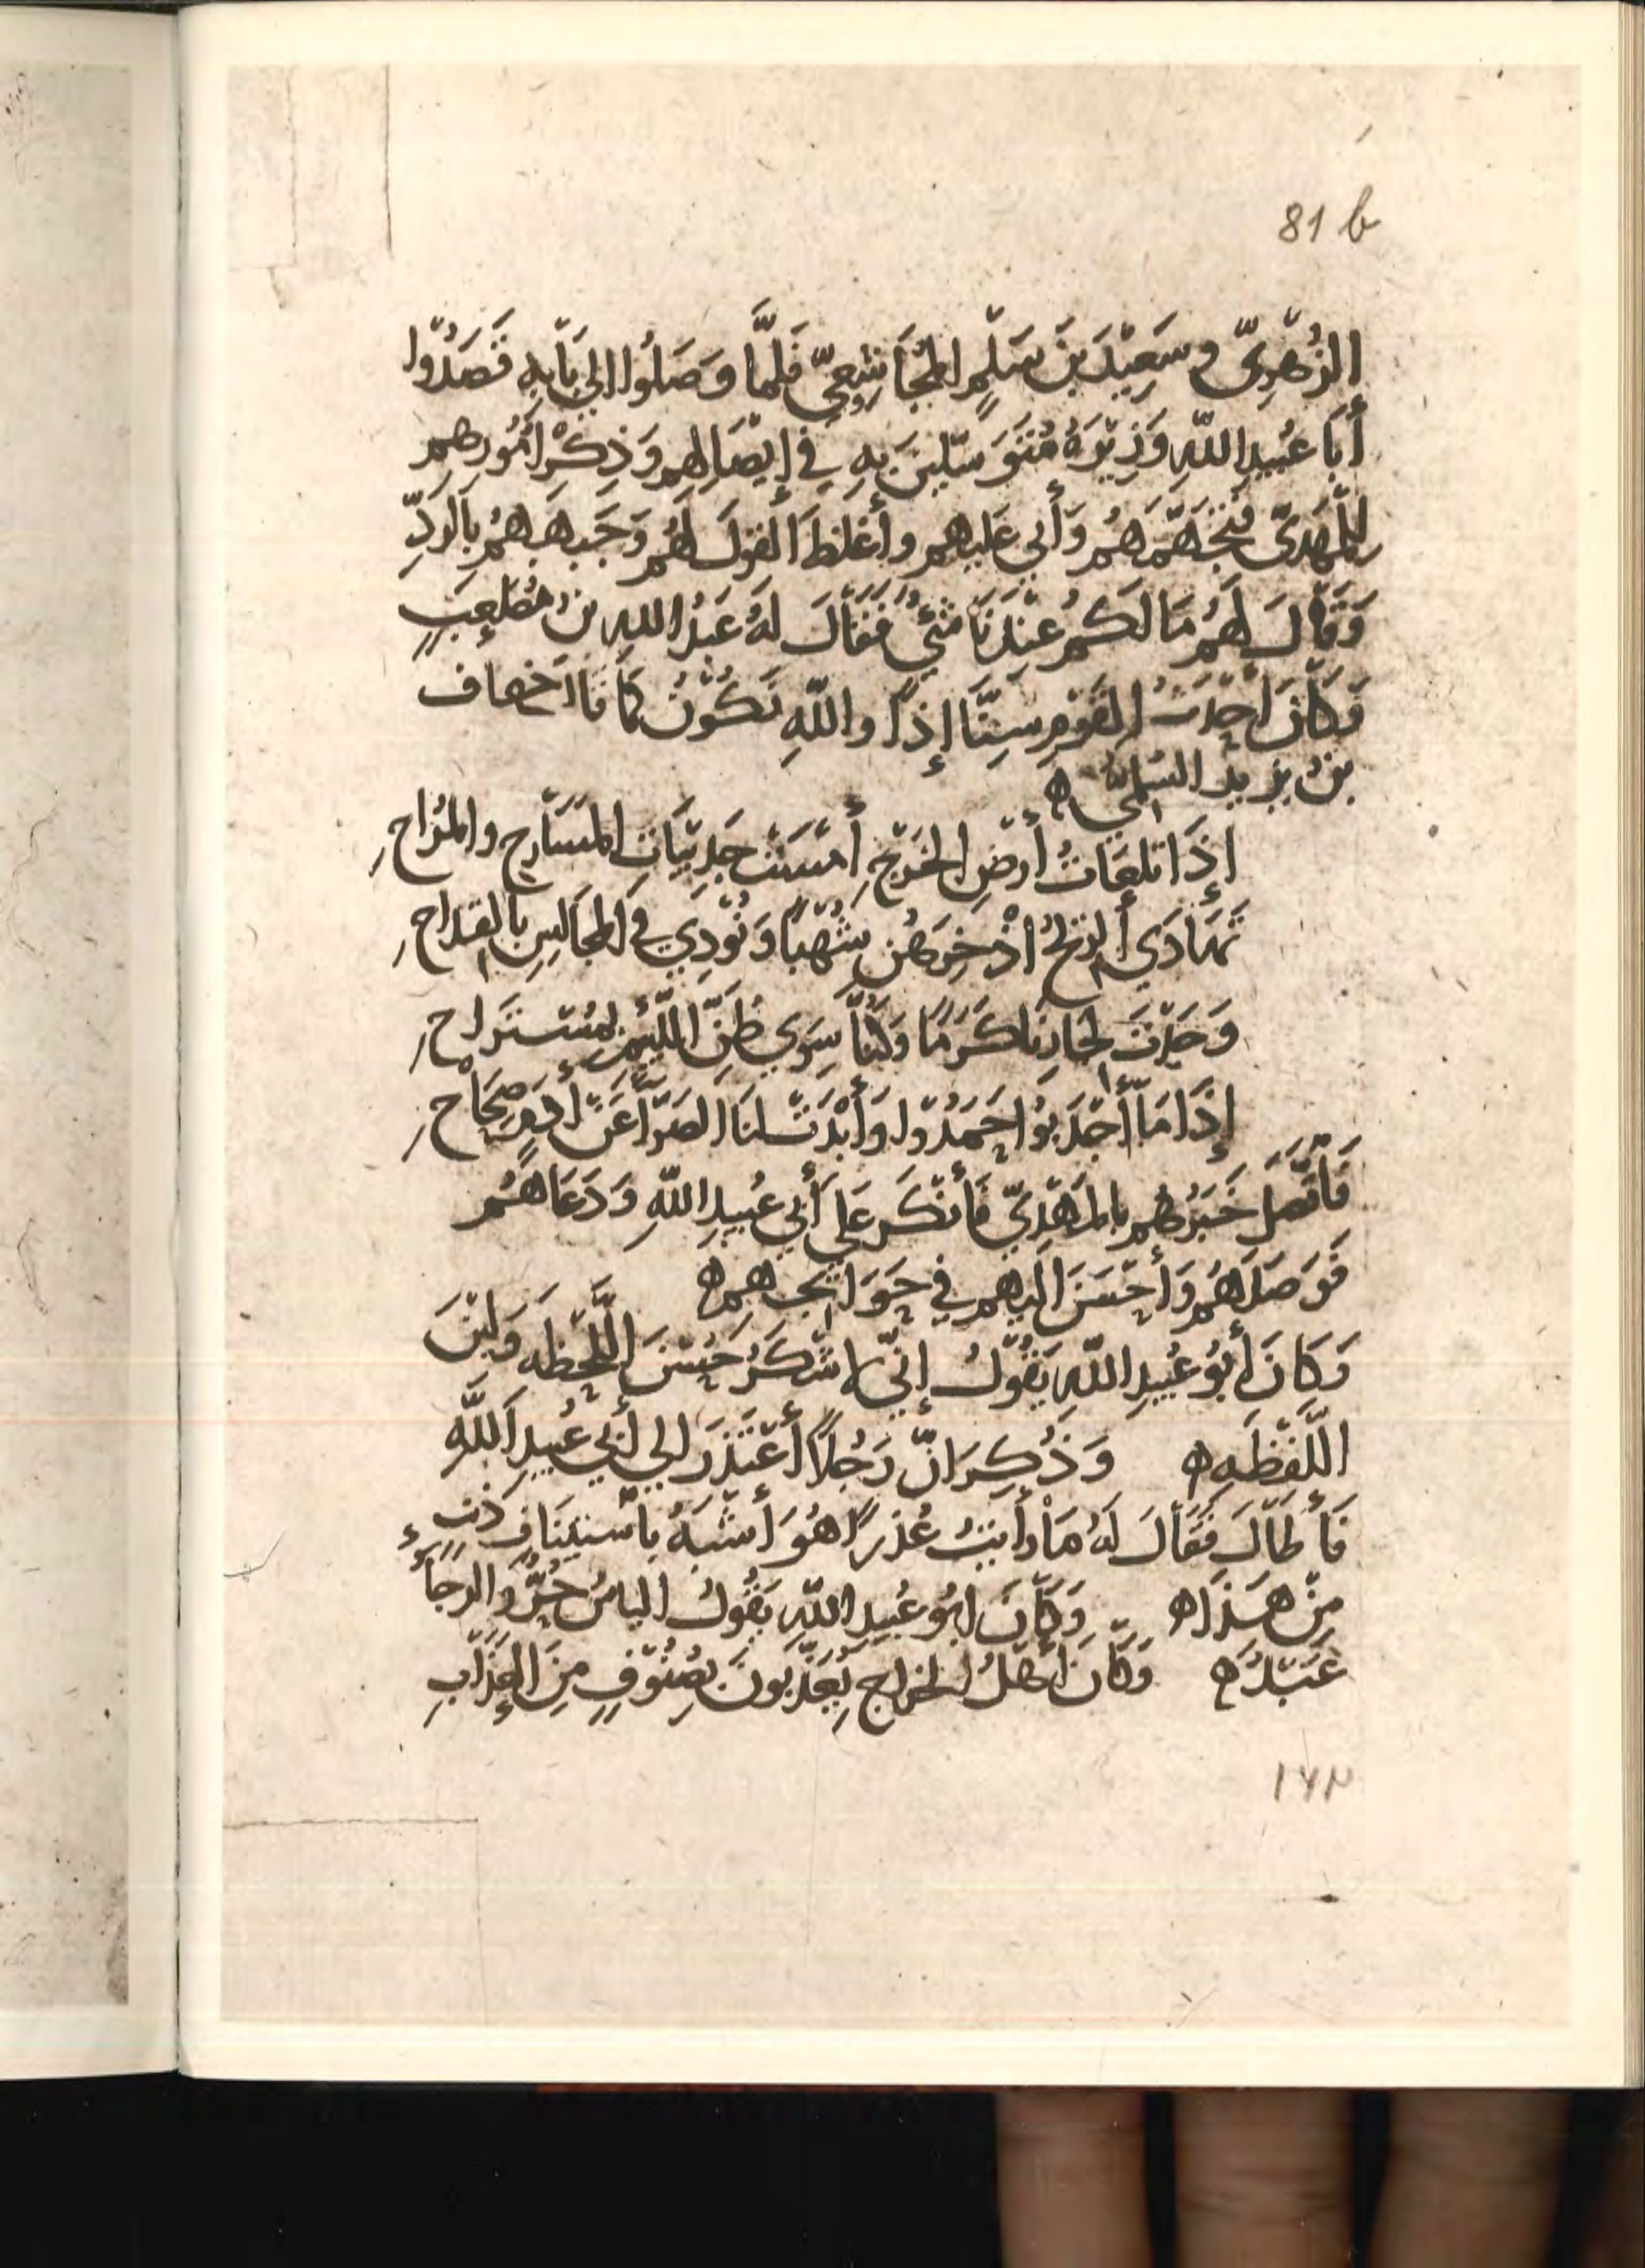 81 b
الزُّهْرِيّ وسَعِيْدَ بنَ سَلْمٍ المُجَاشِعِيّ فَلَمَّا وَصَلُوا الى بَابِهِ قَصَدُوا
أَبَا عُبَيدِ اللّهِ وَزِيْرَهُ مُتَوَسِّلينَ بِهِ فِي إيْصَالِهِم وَذِكْرِ أُمُورِهِم
لِلْمَهْدِىّ فَتَجَهَّمَهُمْ وَأَبَى عَلَيهِم وأَغْلَظَ القَولَ لَهُم وَجَبَهَهُمْ بِالرَدِّ
وَقَالَ لَهُمْ مَا لَكُمْ عِنْدَنَا شَيْءٌ فَقَالَ لَهُ عَبْدُ اللهِ بنُ مُصْعَبٍ
وَكَانَ أَحْدَثَ القَوْمِ سِنًّا إِذًا واللّهِ نَكُونُ كَمَا قَالَ خفاف
بنُ يزيد السُلَمي ه
إِذَا تلعَاتُ أرضِ الخَرْجِ أَمْسَتْ جَدِيْبَاتِ المَسَارِحِ والمُرَاحِ
تَهَادَي الريْحُ إذْخِرَهُن شُهْبًا وَنُوْدِيَ فى المجَالِسِ بالقِدَاحِ
وَجَدْتَ لجَارِنَا كَرَمًا وَلَمَّا سِوَى ظَنِّ اللَّئيْمِ بمُسْتَرَاحِ
إِذَا مَا أَجْدَبُوا حَمَدُوا وَأَبْدَتْ لنَا الضَرَّا عَنْ أدمٍ صِحَاحِ
فَاتَّصَلَ خَبَرُهُم بالمَهْدِيّ فَأَنْكَرَ عَلى أَبي عُبيدِ اللّهِ وَدَعَا هُم
فَوَصَلَهُم وَأَحْسَنَ اليهِم في حَوَائجِهِم ه
وَكَانَ أَبُو عُبَيدِ اللّهِ يَقُولُ إِنّى لاشْكُرُ حُسْنَ اللَّحْظَه وَلِيْنَ
اللَّفْظَه ه وَذُكِرَ انَّ رَجُلاً أَعْتَذَرَ الى أَبي عُبَيدِ اللّهِ
فَأَطَالَ فَقَالَ لَهُ مَا رأَيتُ عُذرًا هُوَ أَشْبَهُ بِاسْتينَافِ ذَنبٍ
مِنْ هَذَا ه وَكَانَ ابُو عُبَيدِ اللّهِ يَقُولُ الياسُ حُرٌّ وَالرجَاءُ
عَبْدٌ ه وَكَانَ أَهْلُ الخراجِ يُعَذَّبُونَ بصُنُوفٍ مِنَ العِذَابِ
١٤٢